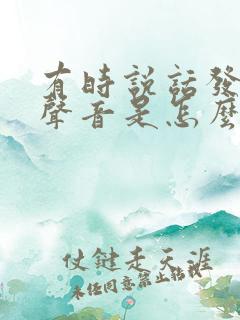 有時說話發
聲音是怎麼
仗鍵走天涯
未经同意禁止转载